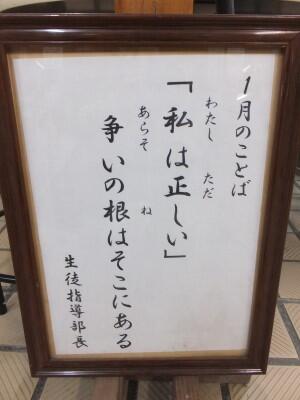 1月のことば
「私は正しい」
わたし ただ
争いの根はそこにある
あらそ ね
生徒指導部長